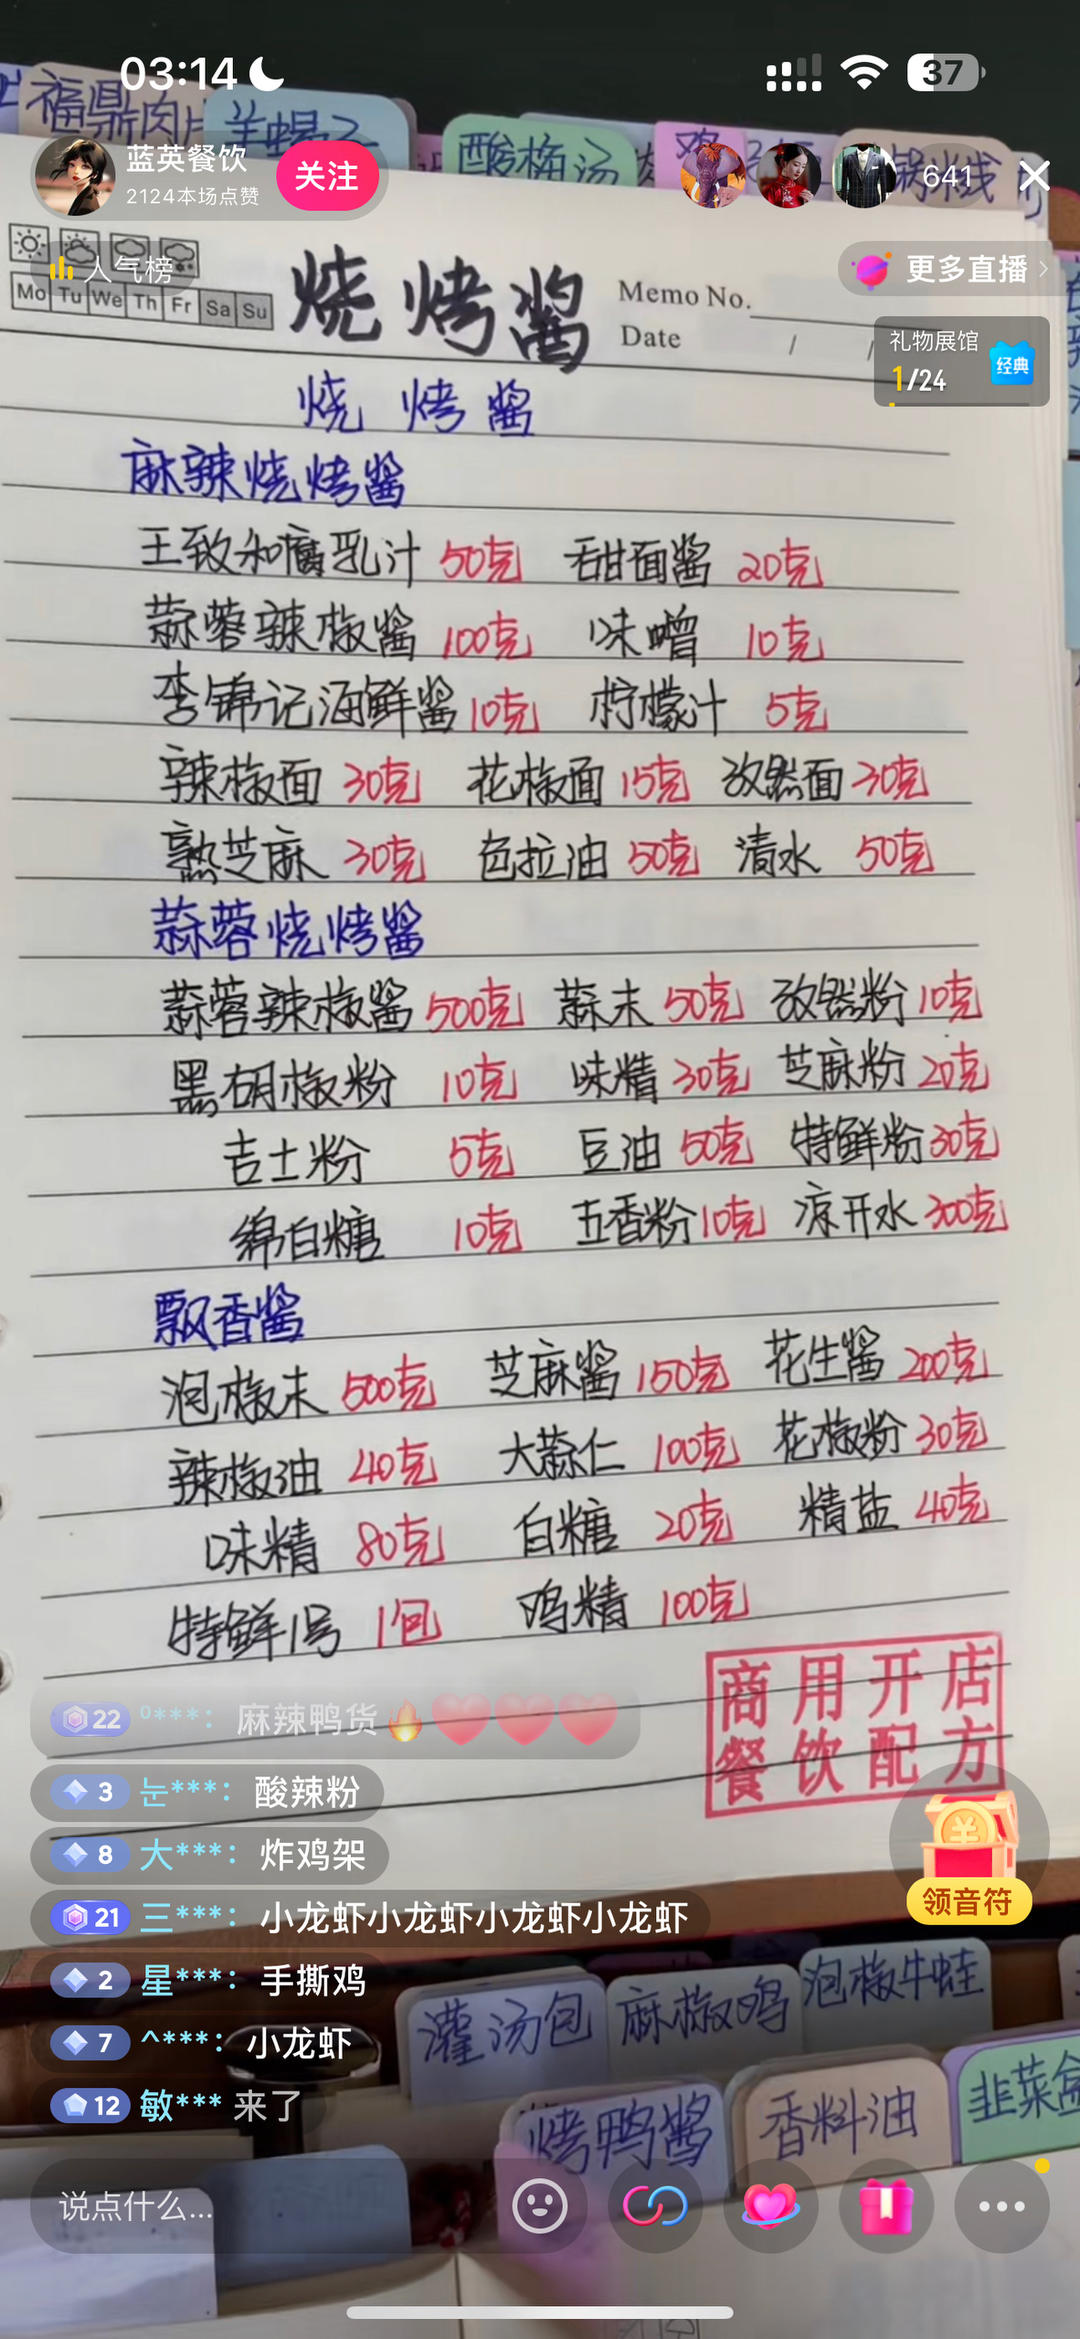 03:14
37
福鼎肉片
酸梅汤
蓝英餐饮
2124本场点赞
关注
641
人气榜
更多直播
礼物展馆
1/24
经典
Mo Tu We Th Fr Sa Su
烧烤酱
Memo No.
Date / /
烧烤酱
麻辣烧烤酱
王致和腐乳汁 50克 甜面酱 20克
蒜蓉辣椒酱 100克 味噌 10克
李锦记海鲜酱 10克 柠檬汁 5克
辣椒面 30克 花椒面 15克 孜然面 30克
熟芝麻 30克 色拉油 50克 清水 50克
蒜蓉烧烤酱
蒜蓉辣椒酱 500克 蒜末 50克 孜然粉 10克
黑胡椒粉 10克 味精 30克 芝麻粉 20克
吉士粉 5克 豆油 50克 特鲜粉 30克
绵白糖 10克 五香粉 10克 凉开水 300克
飘香酱
泡椒末 500克 芝麻酱 150克 花生酱 200克
辣椒油 40克 大蒜仁 100克 花椒粉 30克
味精 80克 白糖 20克 精盐 40克
特鲜1号 1包 鸡精 100克
商用开店
餐饮配方
22 0***： 麻辣鸭货🔥❤️❤️❤️
3 눈***： 酸辣粉
8 大***： 炸鸡架
21 三***： 小龙虾小龙虾小龙虾小龙虾
2 星***： 手撕鸡
7 ^***： 小龙虾
12 敏*** 来了
领音符
灌汤包
麻椒鸡
泡椒牛蛙
烤鸭酱
香料油
韭菜盒
说点什么...